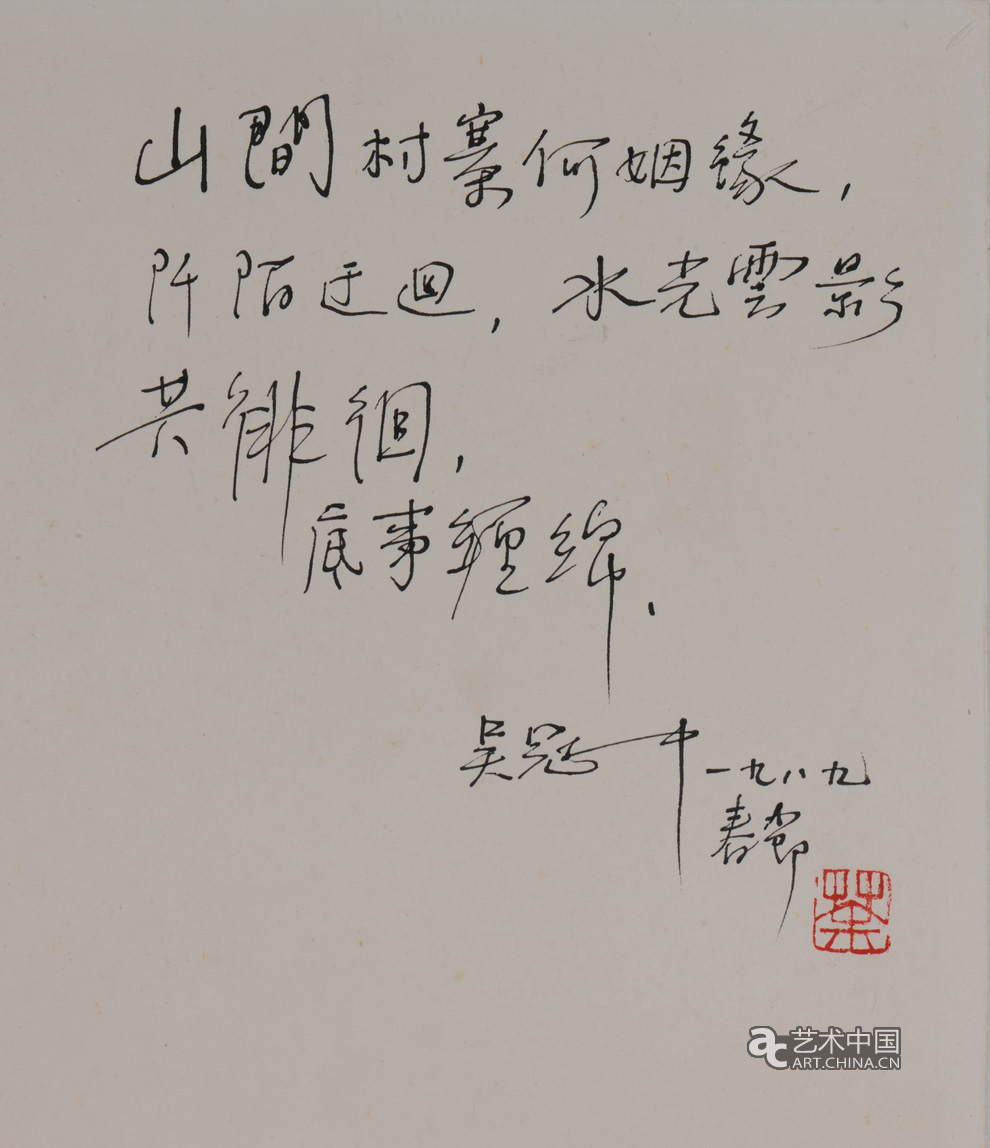 山間村寨何姻緣，
阡陌迂迴，水光雲影
共徘徊，
底事纏綿．
吳冠中 一九八九
春節
荼
ac 艺术中国
ART.CHINA.CN